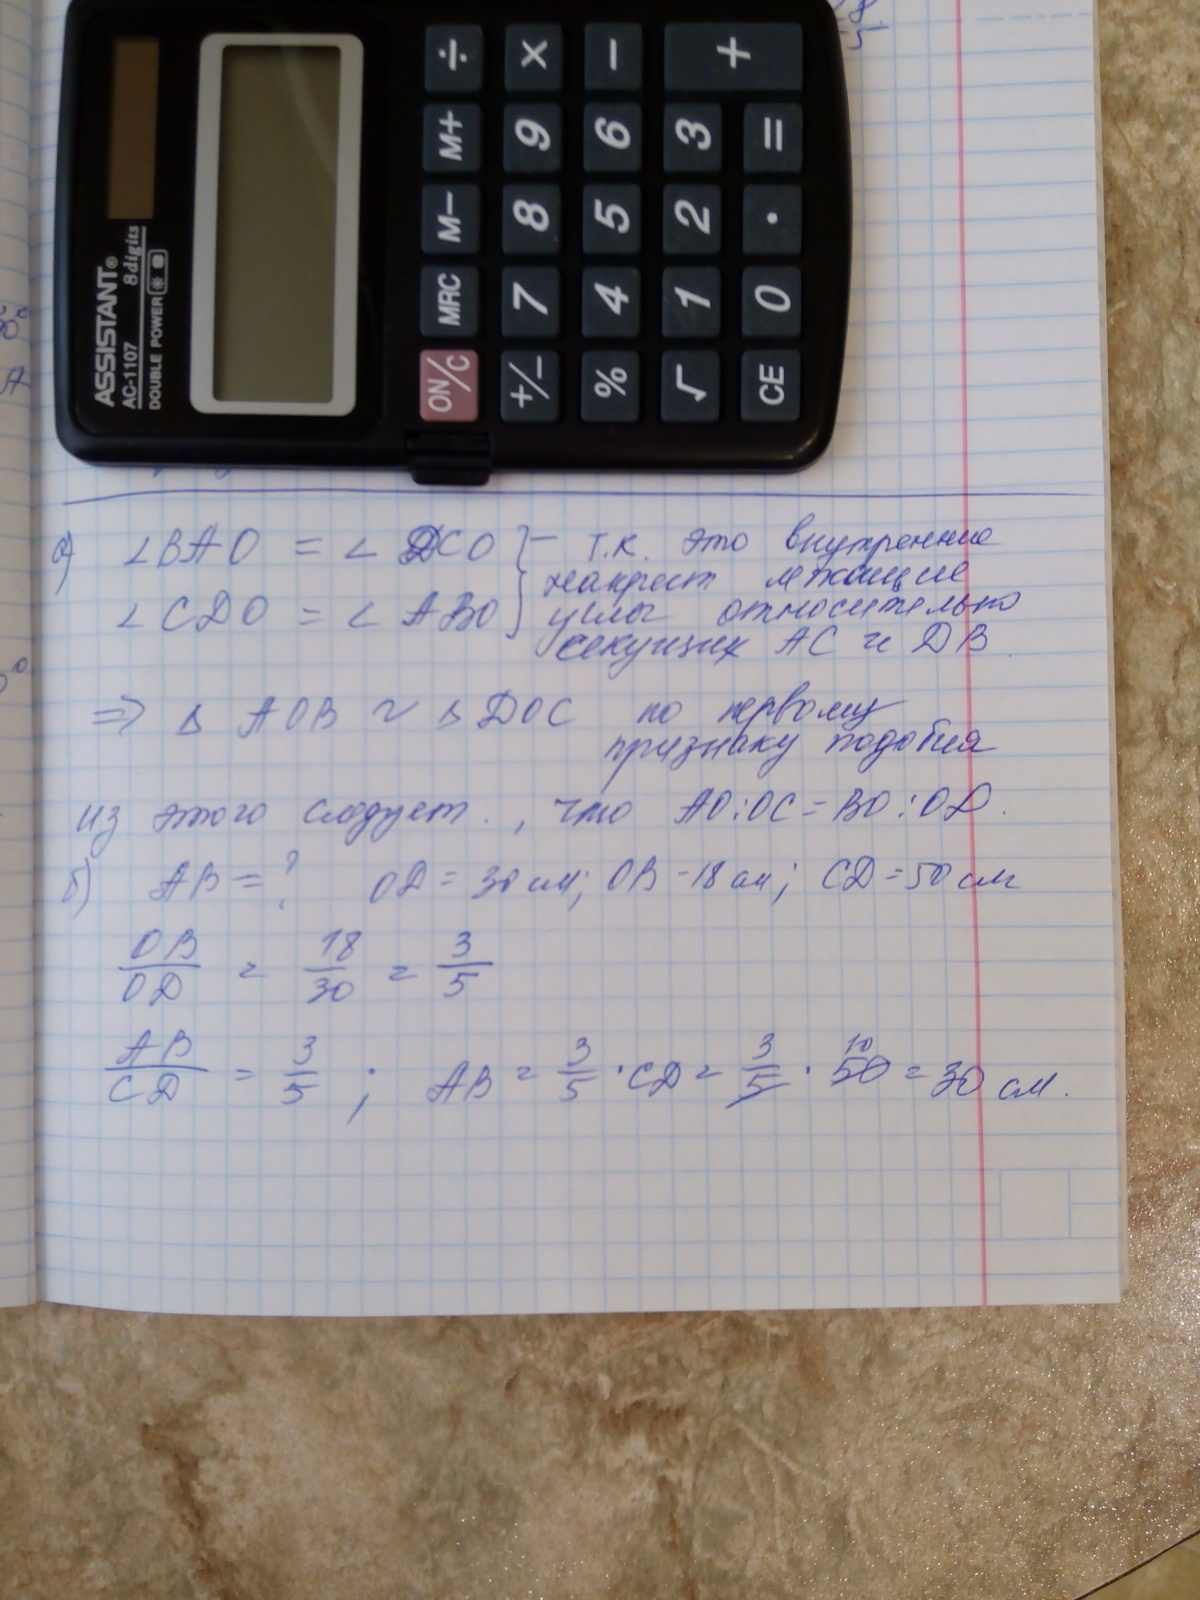 ASSISTANT®
AC-1107 8 digits
DOUBLE POWER
÷ × − +
M+ 9 6 3 =
M− 8 5 2 .
MRC 7 4 1 0
ON/C +/− % √ CE
а) ∠BAO = ∠DCO } – т.к. это внутренние
накрест лежащие
∠CDO = ∠ABO углы относительно
секущих AC и DB.
⇒ Δ AOB ~ Δ DOC по первому
признаку подобия
из этого следует, что AO:OC = BO:OD.
б) AB = ? OD = 30 см; OB = 18 см; CD = 50 см
OB/OD = 18/30 = 3/5
AB/CD = 3/5 ; AB = 3/5 · CD = 3/5 · 50 10 = 30 см.